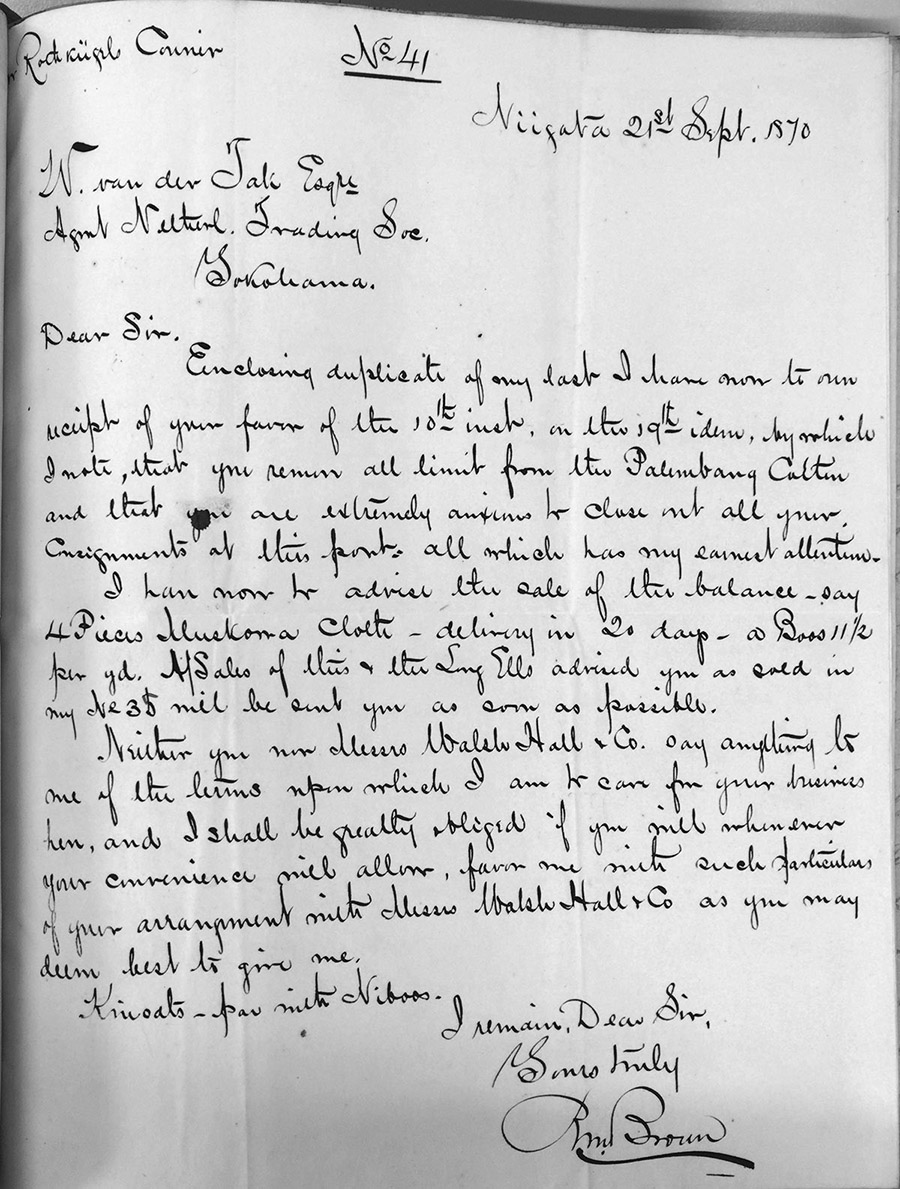 Rothkügel Courier
No 41
Niigata 21st Sept. 1870
W. van der Tak Esqre
Agent Netherl. Trading Soc.
Yokohama.
Dear Sir.
Enclosing duplicate of my last I have now to own
receipt of your favor of the 10th inst, on the 19th idem, by which
I note, that you remove all limit from the Palembang Cotton
and that you are extremely anxious to close out all your
Consignments at this port: all which has my earnest attention.
I have now to advise the sale of the balance - say
4 Pieces Muskowa Cloth - delivery in 20 days - @ Boos 11 1/2
per yd. A/Sales of this & the Long Ells advised you as sold in
my No 38 will be sent you as soon as possible.
Neither you nor Messrs Walsh Hall & Co. say anything to
me of the terms upon which I am to care for your business
here, and I shall be greatly obliged if you will whenever
your convenience will allow, favor me with such particulars
of your arrangment with Messrs Walsh Hall & Co as you may
deem best to give me.
Kinsats - par with Niboos.
I remain, Dear Sir,
Yours truly
Brown